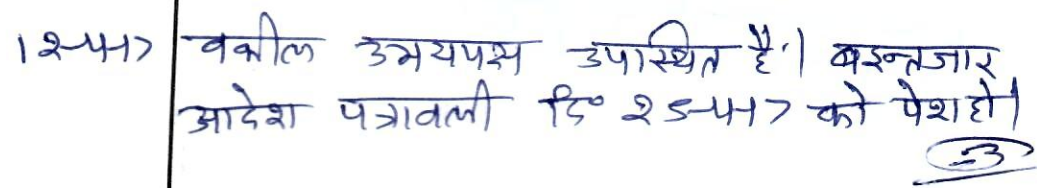 12-4-17 वकील उभयपक्ष उपास्थित है। बइन्तजार
आदेश पत्रावली दि० 25-4-17 को पेश हो।